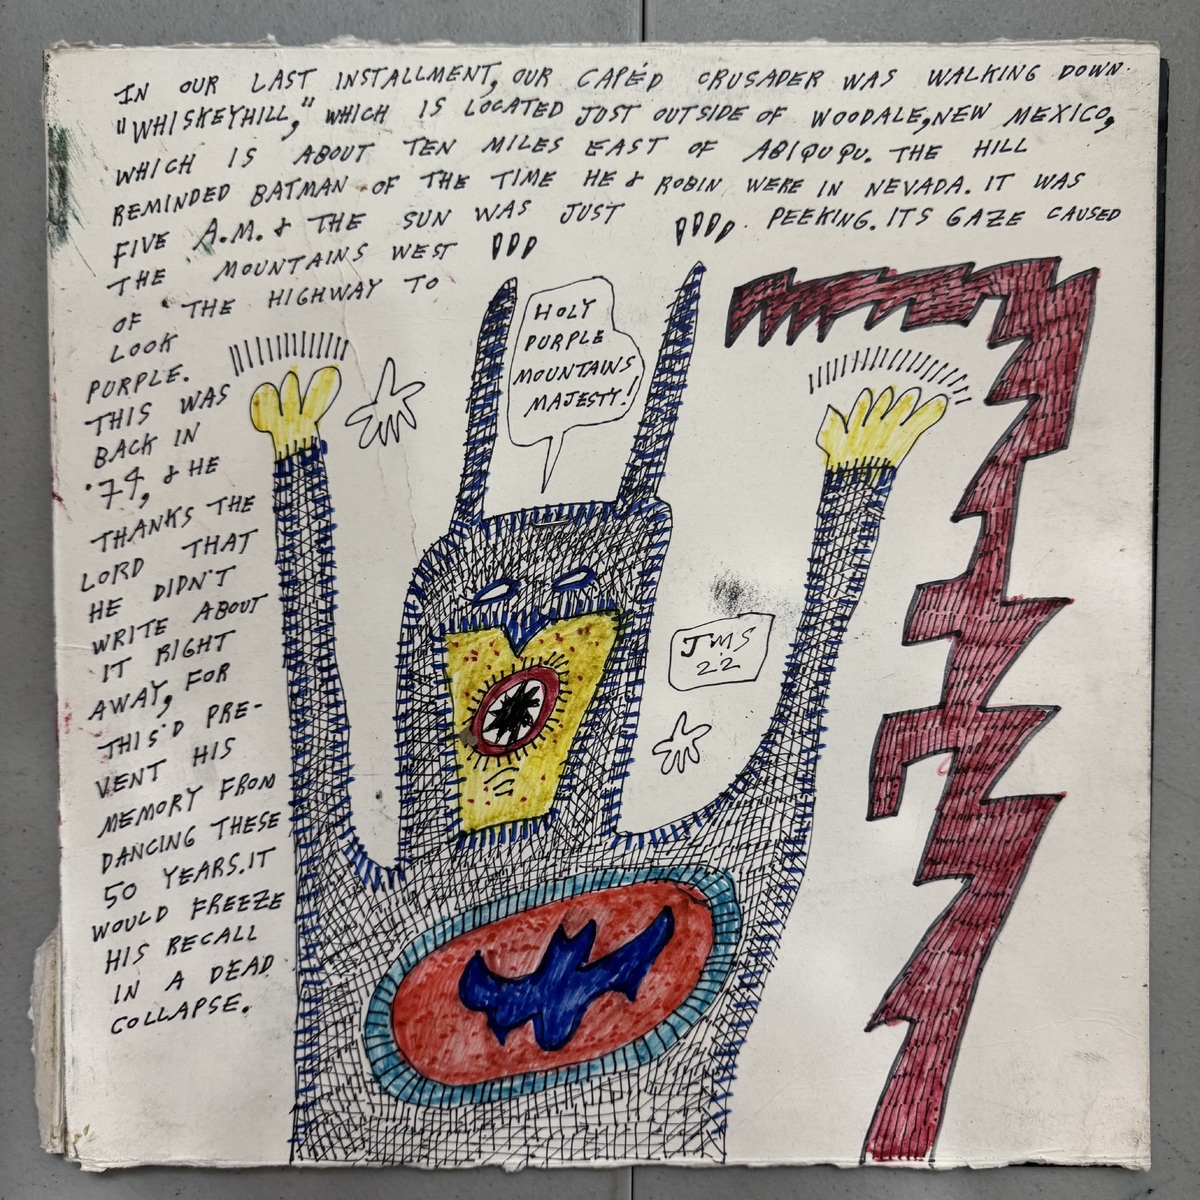 IN OUR LAST INSTALLMENT, OUR CAPÉD CRUSADER WAS WALKING DOWN
"WHISKEYHILL," WHICH IS LOCATED JUST OUTSIDE OF WOODALE, NEW MEXICO,
WHICH IS ABOUT TEN MILES EAST OF ABIQUQU. THE HILL
REMINDED BATMAN OF THE TIME HE & ROBIN WERE IN NEVADA. IT WAS
FIVE A.M. & THE SUN WAS JUST PEEKING. ITS GAZE CAUSED
THE MOUNTAINS WEST
OF THE HIGHWAY TO
LOOK
PURPLE.
THIS WAS
BACK IN
'74, & HE
THANKS THE
LORD THAT
HE DIDN'T
WRITE ABOUT
IT RIGHT
AWAY, FOR
THIS'D PRE-
VENT HIS
MEMORY FROM
DANCING THESE
50 YEARS. IT
WOULD FREEZE
HIS RECALL
IN A DEAD
COLLAPSE.
HOLY
PURPLE
MOUNTAINS
MAJESTY!
JMS
22